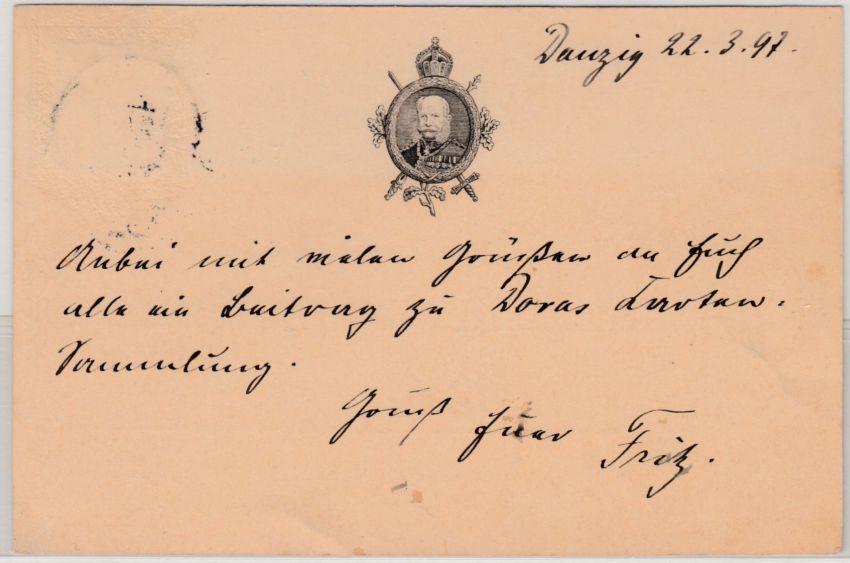 Danzig 22. 3. 97.
Anbei mit vielen Grüßen an Euch
alle ein Beitrag zu Doras Karten-
Sammlung.
Gruß Euer Fritz.